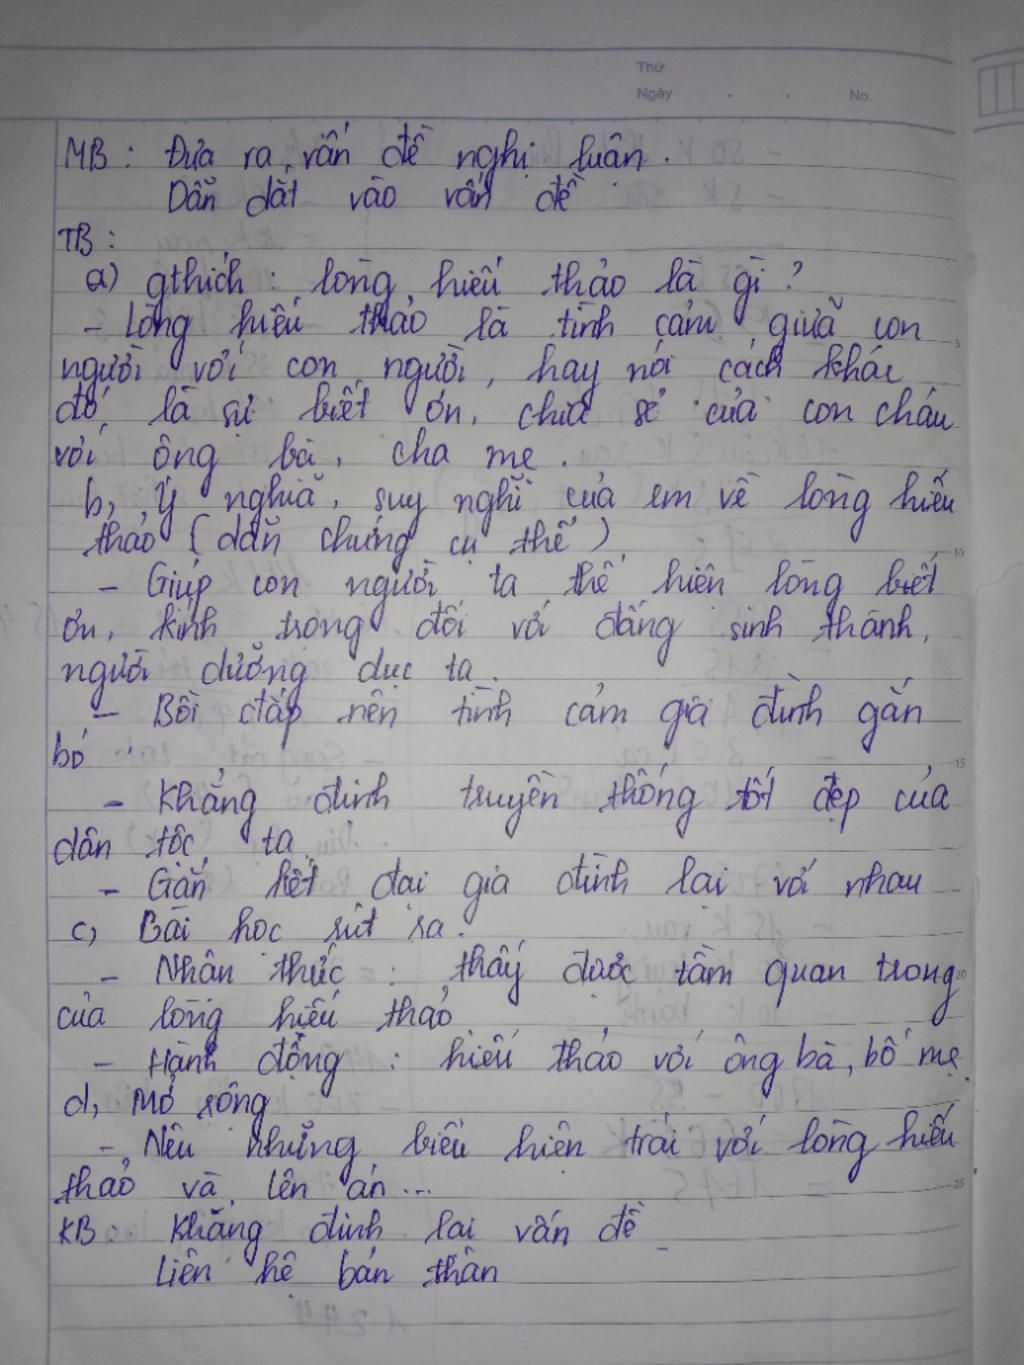 Thứ
Ngày . . No.
MB : Đưa ra vấn đề nghị luận.
Dẫn dắt vào vấn đề
TB :
a) gthích : lòng hiếu thảo là gì ?
- Lòng hiếu thảo là tình cảm giữa con
người với con người, hay nói cách khác
đó là sự biết ơn, chia sẻ của con cháu
với ông bà, cha mẹ.
b, Ý nghĩa, suy nghĩ của em về lòng hiếu
thảo (dẫn chứng cụ thể)
- Giúp con người ta thể hiện lòng biết
ơn, kính trọng đối với đấng sinh thành,
người dưỡng dục ta.
- Bồi đắp nên tình cảm gia đình gắn
bó
- Khẳng định truyền thống tốt đẹp của
dân tộc ta
- Gắn kết đại gia đình lại với nhau
c, Bài học rút ra.
- Nhận thức : thấy được tầm quan trọng
của lòng hiếu thảo
- Hành động : hiếu thảo với ông bà, bố mẹ.
d, Mở rộng
- Nêu những biểu hiện trái với lòng hiếu
thảo và lên án...
KB : Khẳng định lại vấn đề
Liên hệ bản thân